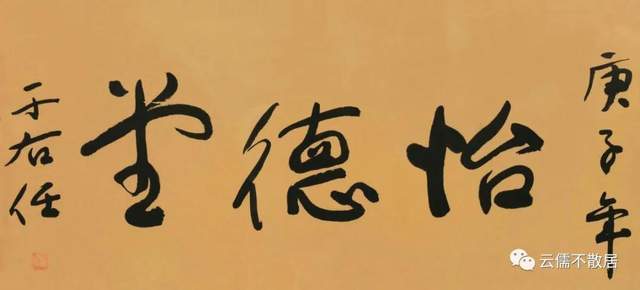 庚子年
怡德堂
于右任
云儒不散居